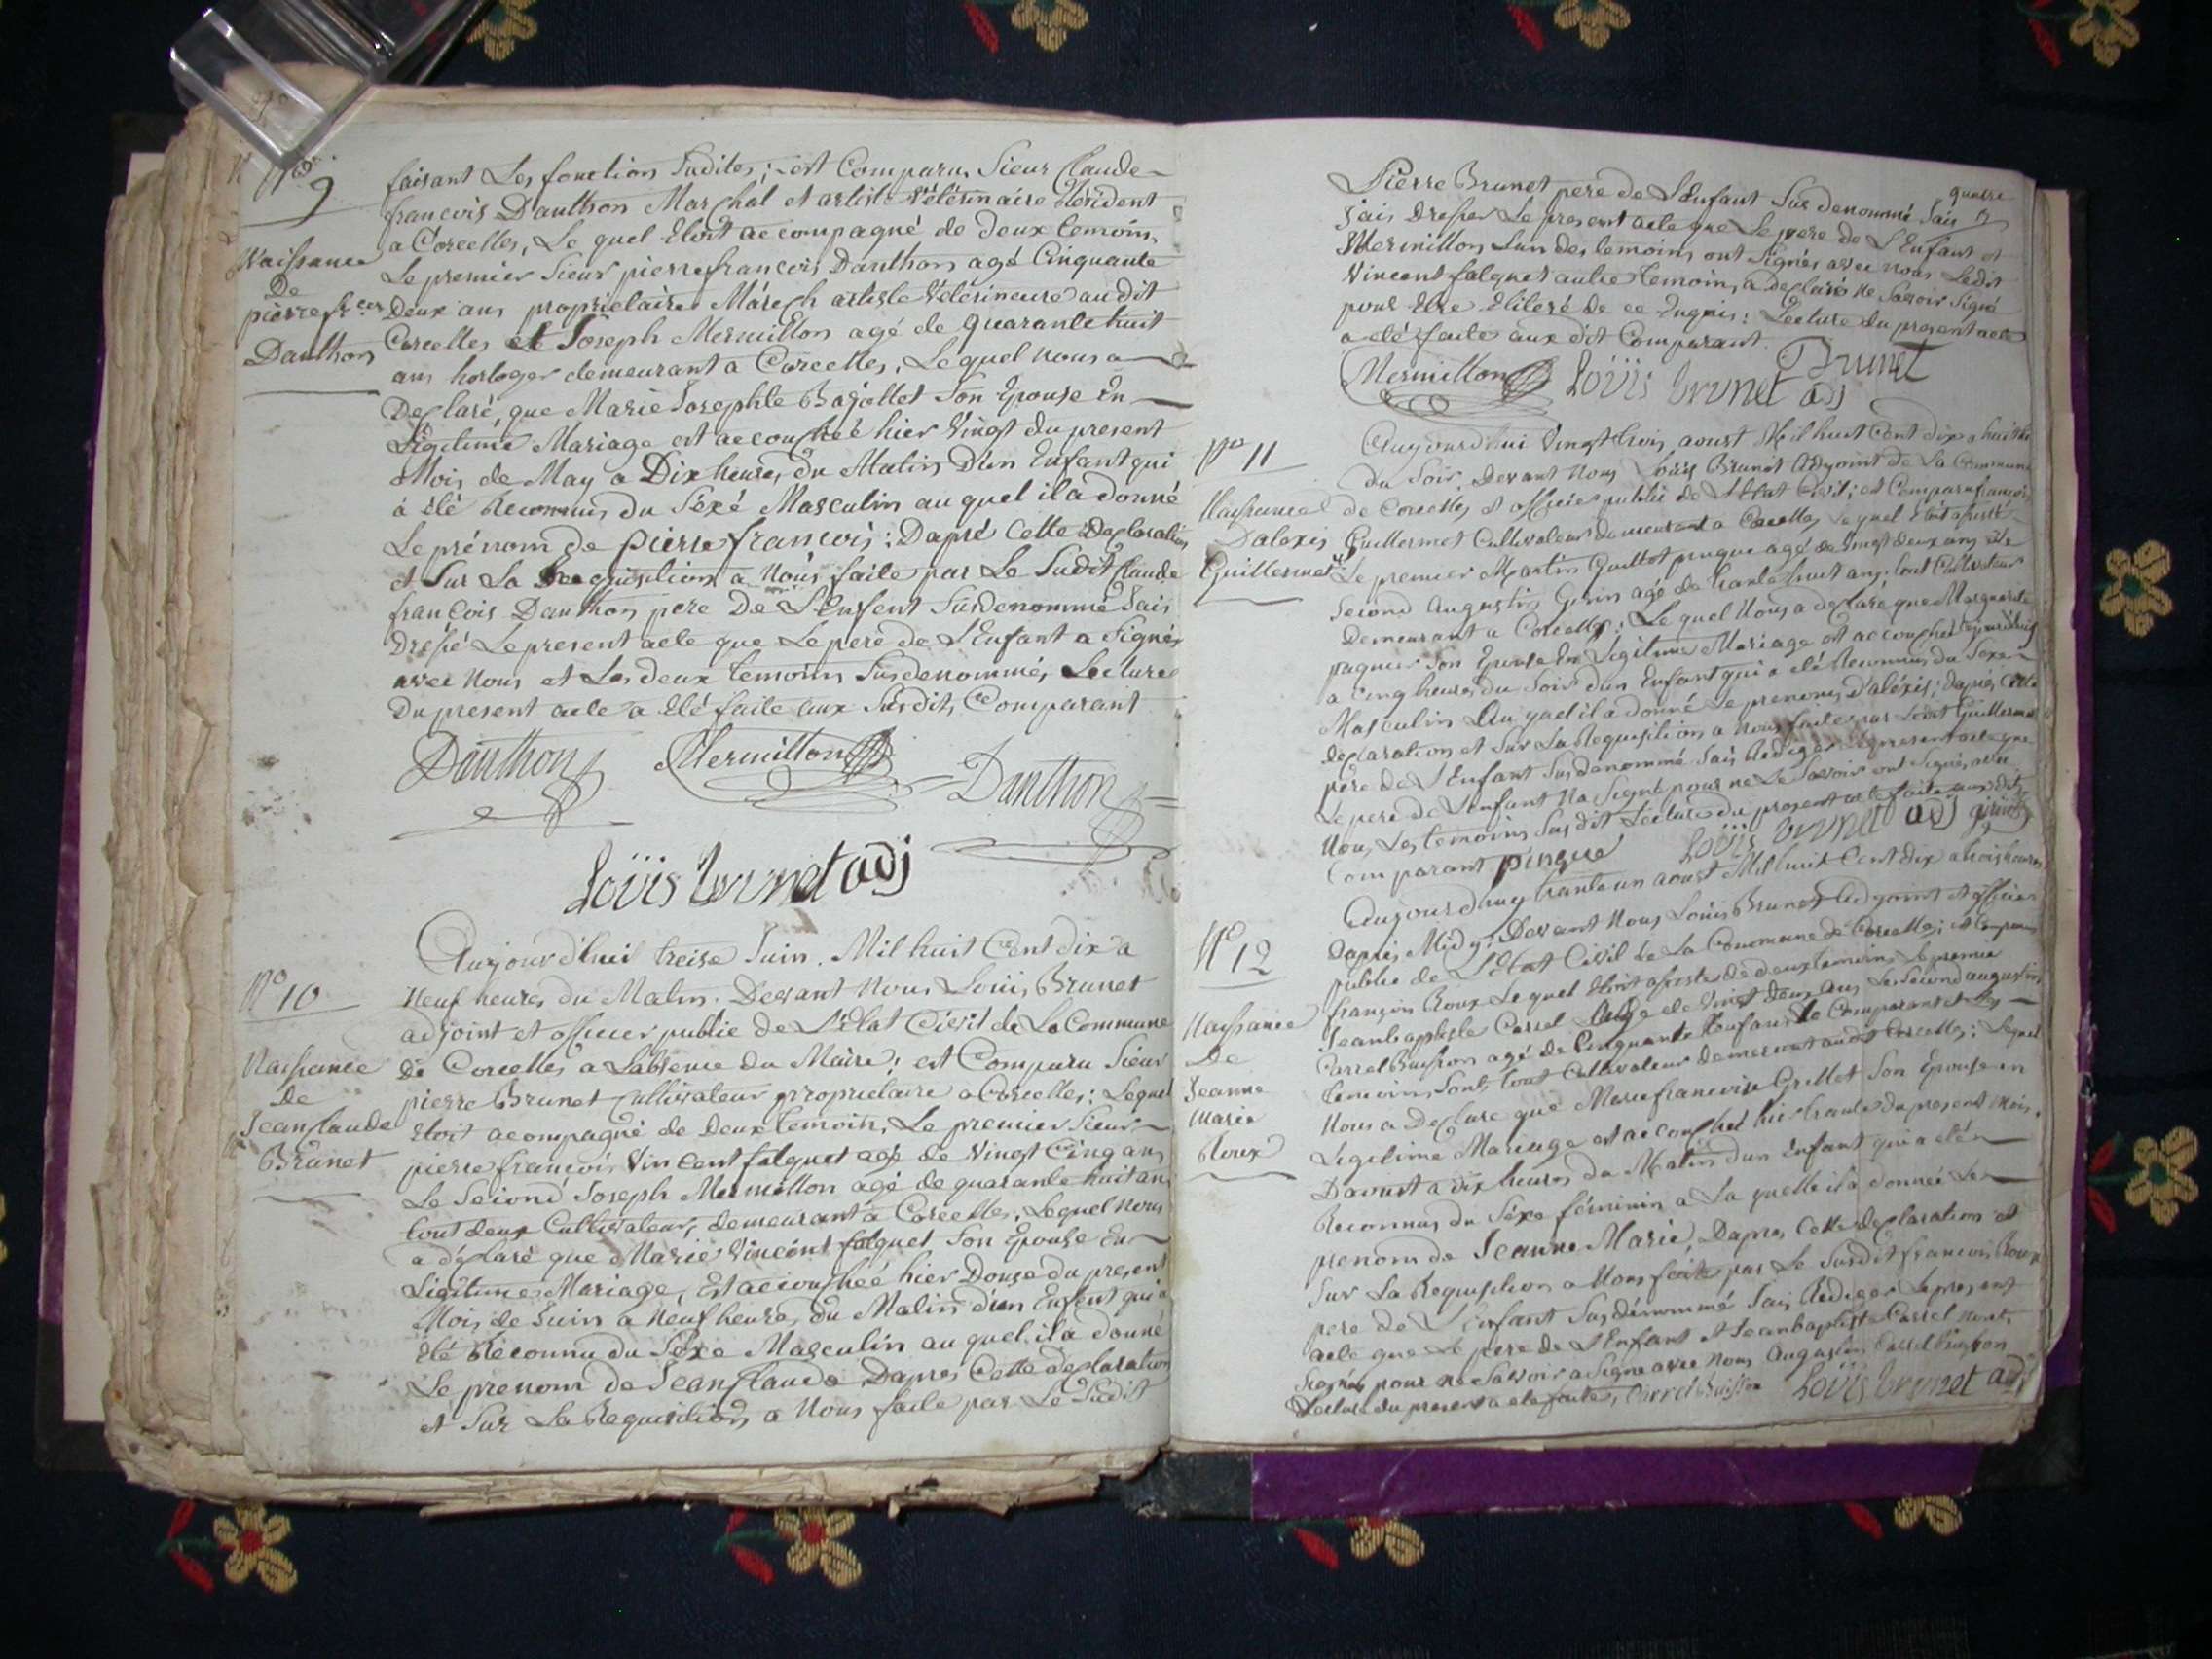 N° 9
Naissance
De
pierre fr.cois
Danthon
faisant Les fonction Sudites; est Comparu Sieur Claude
francois Danthon Marchal et artiste Vétérinaire Résident
a Corcelles, Le quel Etoit accompagné de deux temoins
Le premier Sieur pierre francois Danthon agé Cinquante
Deux ans proprietaire Maréch artiste Veterineure au dit
Corcelles et Joseph Mermillon agé de quarante huit
ans horloger demeurant a Corcelles, Le quel nous a
Declaré, que Marie Josephte Bajollet Son Epouse En
Légitime Mariage est accouchéé hier Vingt du present
Mois de May a Dix heures du Matin D'un Enfant qui
à été Reconnus du Séxé Masculin au quel il a donné
Le prénom de pierre francois: Dapré Cette Declaration
et Sur La Requisition a Nous faite par Le Sudit Claude
françois Danthon pere De L'Enfent Susdenommé Jais
Dressé Le present acte que Le peré de L'Enfant a Signés
avec Nous et Les deux temoins Susdenommés Lecture
Du present acte a Eté faite aux Susdits Comparant
Danthon Mermillon Danthon
Loüis brunet adj
N° 10
Naissance
de
Jean Claude
Brunet
Aujourdhui treise Juin. Mil huit Cent dix a
Neuf heures du Matin. Devant Nous Louis Brunet
adjoint et officier public de L'Etat Civil de La Commune
de Corcelles a Labsence du Maire; est Comparu Sieur
pierre Brunet Cultivateur proprietaire a Corcelles: Lequel
Etoit acompagné de Deux temoins, Le premier Sieur
pierre francois Vincent falquet agé de Vingt Cinq ans
Le Second Joseph Mermillon agé de quarante huit ans
tout deux Cultivateur, demeurant a Corcelles, Lequel nous
a déclaré que Marie Vincent falquet Son Epouse En
Ligitime Mariage, Est accouchéé hier Douze du present
Mois de Juin a Neuf heures du Matin d'un Enfent qui a
Eté Reconnu du Séxe Masculin au quel il a donné
Le prenom de Jean Claude, Dapres Cette declaration
et Sur La Requisition a Nous faite par Le Sudit
quatre
Pierre Brunet pere de L'Enfant Sus denommé Jais
Jais Dresser Le present acte que Le pere de L'Enfant et
Mermillon Lun des temoins ont Signés avec nous Ledit
Vincent falquet autre temoin, a declaré Ne Savoir Signé
pour Etre Eliteré de ce Enquis: Lecture du present acte
a été faite aux dit Comparant.
Brunet
Mermillon Loüis brunet adj
N° 11
Naissance
Dalexis
Guillermet
Aujourdhui Vingt trois aoust Mil huit Cent dix a huit h
du Soir. Devant Nous Louis Brunet Adjoint de La Commune
de Corcelles et officier public de L'Etat Civil; est Comparu francois
Guillermet Cultivateur demeurant a Corcelles, Lequel Etoit assisté
Le premier Martin Guittot pingue agé de Vingt deux ans Le
Second Augustin Girin agé de trante huit ans; tout Cultivateur
Demeurant a Corcelles; Le quel Nous a declaré que Marguerite
paquier Son Epouse En Legitime Mariage est accouchéé
a Cinq heures du Soir d'un Enfant qui a été Reconnus du Sexe
Masculin Au quel il a donné Le prenoms d'aléxis; dapres Cette
declaration et Sur La Requisition a Nous faite par Ledit Guillermet
pére de L'Enfant Susdenommé Jais Rediger Le present acte que
Le pere de Lenfant Na Signé pour ne Le Savoir ont Signés avec
Nous Les temoins Susdit Lecture du present acte faite aux dits
Comparant pingue Loüis brunet adj girin
N° 12
Naissance
De
Jeanne
Marie
Roux
Aujourdhuy trante un aoust Mil huit Cent dix a trois heures
Dapres Midy: Devant Nous Louis Brunet Adjoint et officier
public de L'Etat Civil de La Commune de Corcelles; est Comparu
françois Roux Lequel Etoit assisté de deux temoins Le premier
Jeanbaptiste Carrel Agé de Vingt deux ans Le Second augustin
Carrel Buisson agé de Cinquante Neuf ans Le Comparant et Les
temoins Sont tout Cultivateur demeurant audit Corcelles: Lequel
Nous a Declaré que Marie francoise Grillet Son Epouse en
Legitime Mariage est accouchéé hier trante du present Mois
Daoust a dix heures du Matin dun Enfant qui a été
Reconnus du Séxe féminin a La quelle il a donnéé Le
prenom de Jeanne Marie, Dapres Cette declaration et
Sur La Requisition a Nous faite par Le Susdit francois Roux
pere de L'Enfant Susdénommé Jais Rediger Le present
acte que Le pere de L'Enfant et Jeanbaptiste Carrel Nont
Signés pour ne Savoir a Signé avec Nous Augustin Carrel buisson
Lecture du present a ete faite, Carrel Buisson Loüis brunet adj